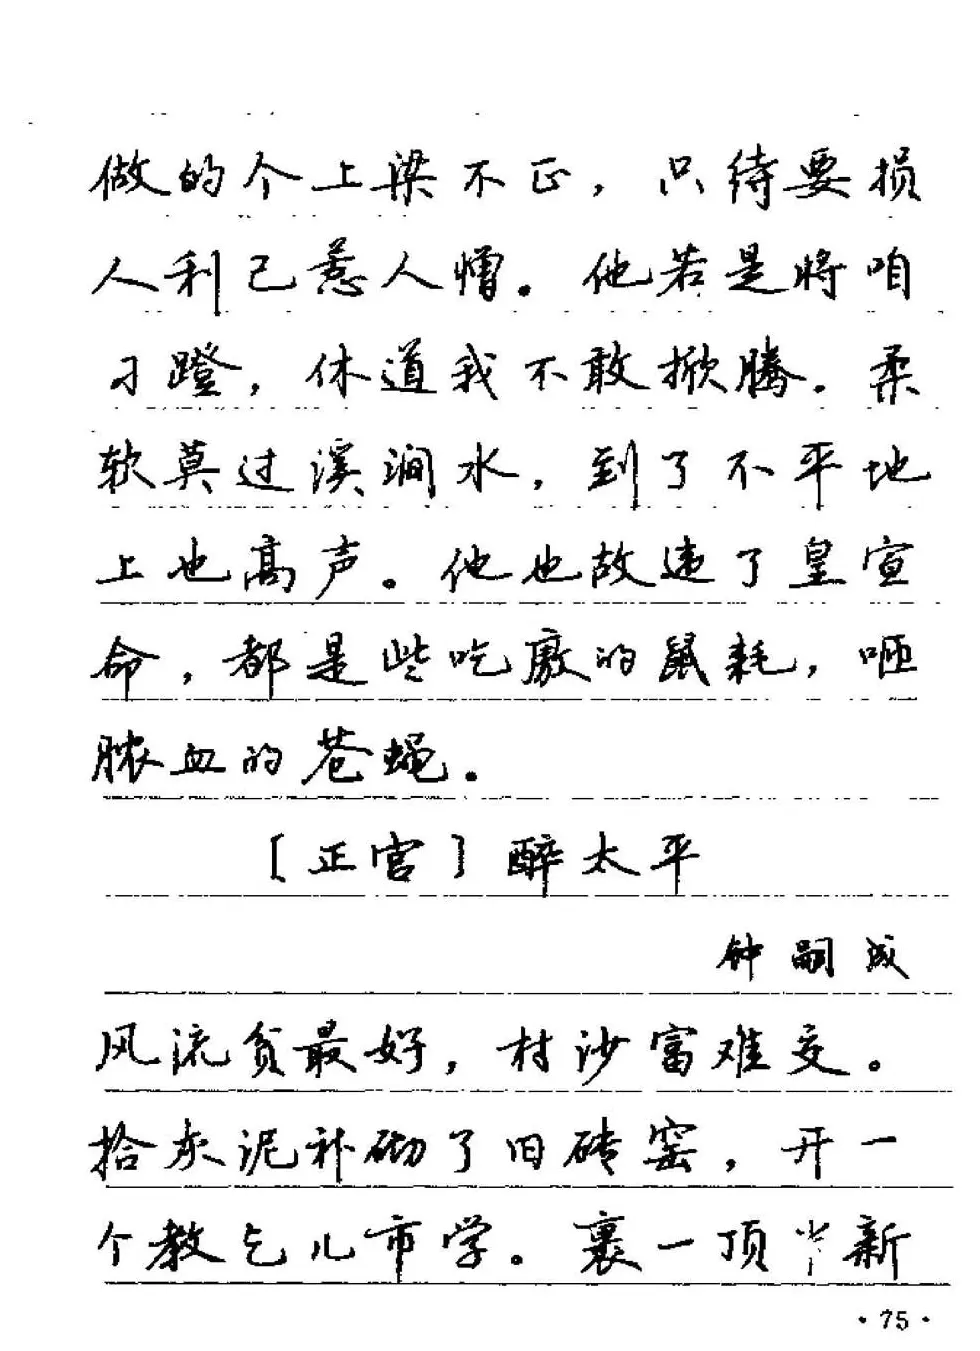 做的个上梁不正，只待要损
人利己惹人憎。他若是将咱
刁蹬，休道我不敢掀腾。柔
软莫过溪涧水，到了不平地
上也高声。他也故违了皇宣
命，都是些吃廒的鼠耗，咂
脓血的苍蝇。
［正宫］醉太平
钟嗣成
风流贫最好，村沙富难交。
拾灰泥补砌了旧砖窑，开一
个教乞儿市学。裹一顶半新
·75·